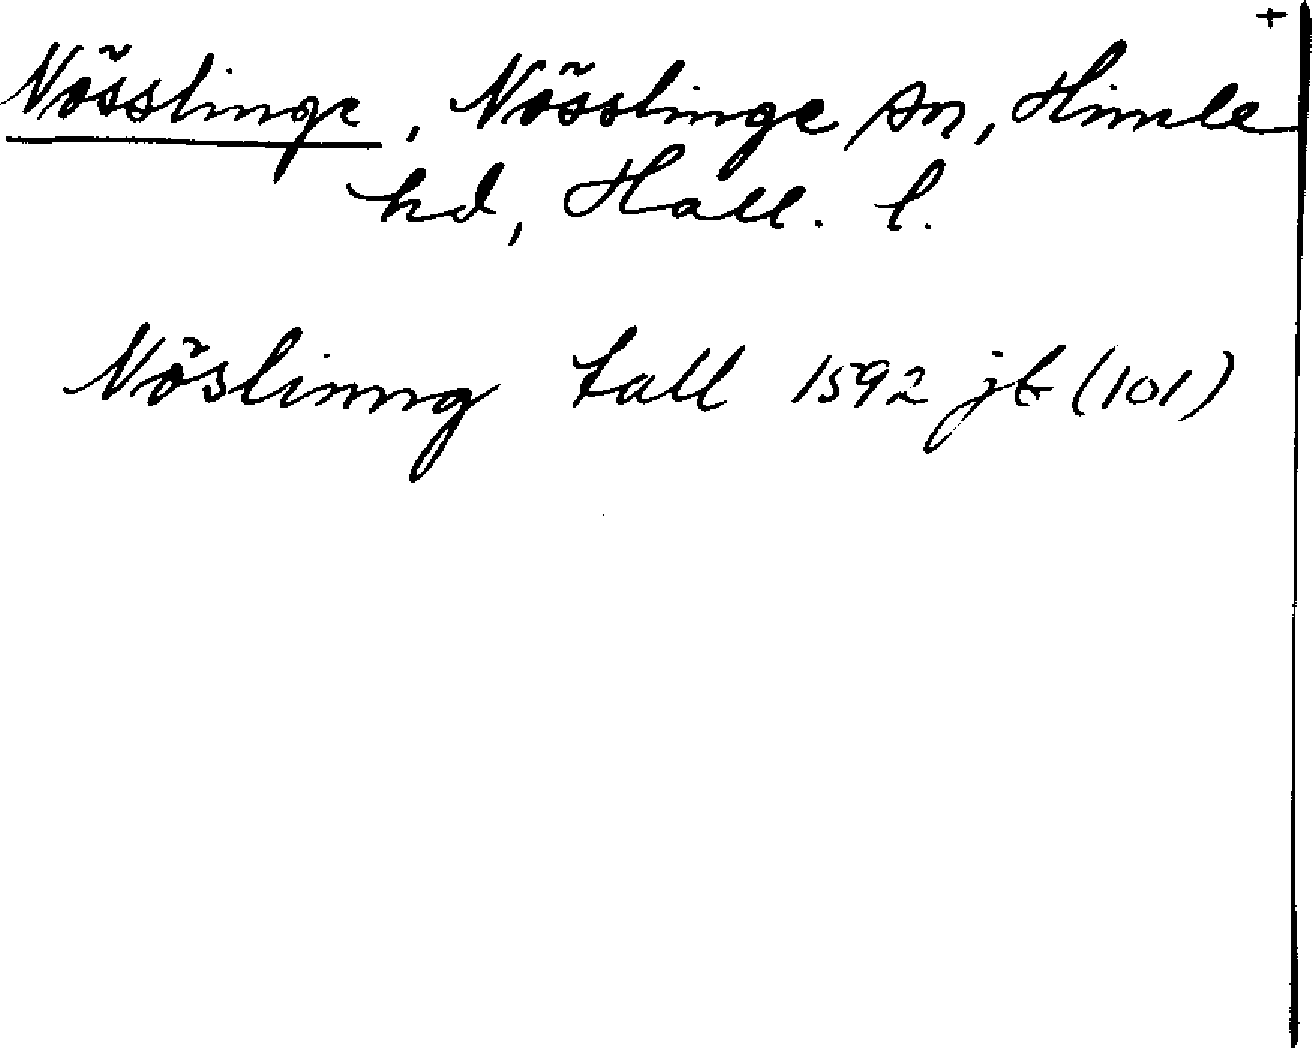 +
Nösslinge, Nösslinge sn, Himle
hd, Hall. l.
Nöslinng tall 1592 jb (101)